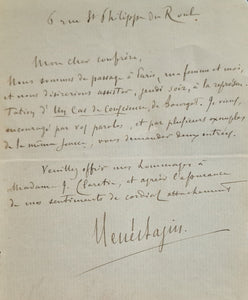 6 rue St Philippe du Roule.
Mon cher confrère,
Nous sommes de passage à Paris, ma femme et moi,
et nous désirerions assister, jeudi soir, à la représen-
tation d'Un Cas de Conscience de Bourget. Je viens,
encouragé par vos paroles, et par plusieurs exemples
de la même faveur, vous demander deux entrées.
Veuillez offrir nos hommages à
Madame J. Claretie, et agréer l'assurance
de mes sentiments de cordial attachement